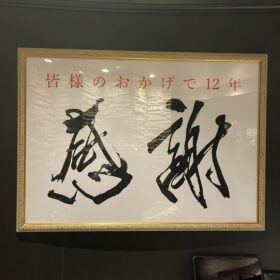 皆様のおかげで12年
感謝